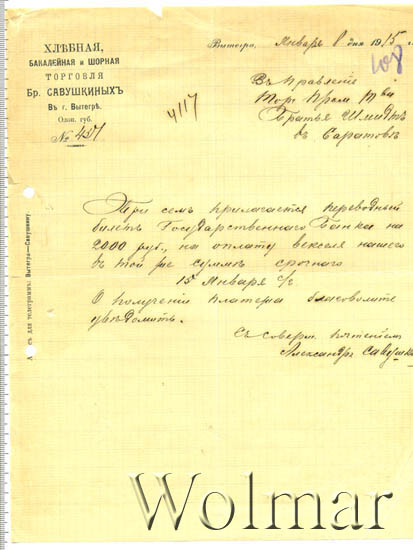 ХЛѢБНАЯ,
БАКАЛЕЙНАЯ и ШОРНАЯ
ТОРГОВЛЯ
Бр. САВУШКИНЫХЪ
Въ г. Вытегрѣ.
Олон. губ.
№ 457
Вытегра, Января 8 дня 1915 г.
108
4117
Въ Правленіе
Тор. Пром. Т-ва
Братья Шмидтъ
въ Саратовѣ
При семъ прилагается переводный
билетъ Государственнаго Банка на
2000 руб., на оплату векселя нашего
въ той же суммѣ срочнаго
15 Января с/г
О полученіи платежа благоволите
увѣдомить.
Съ соверш. почтеніем
Александръ Савушк
А съ для телеграммъ: Вытегра—Савушкину.
Wolmar